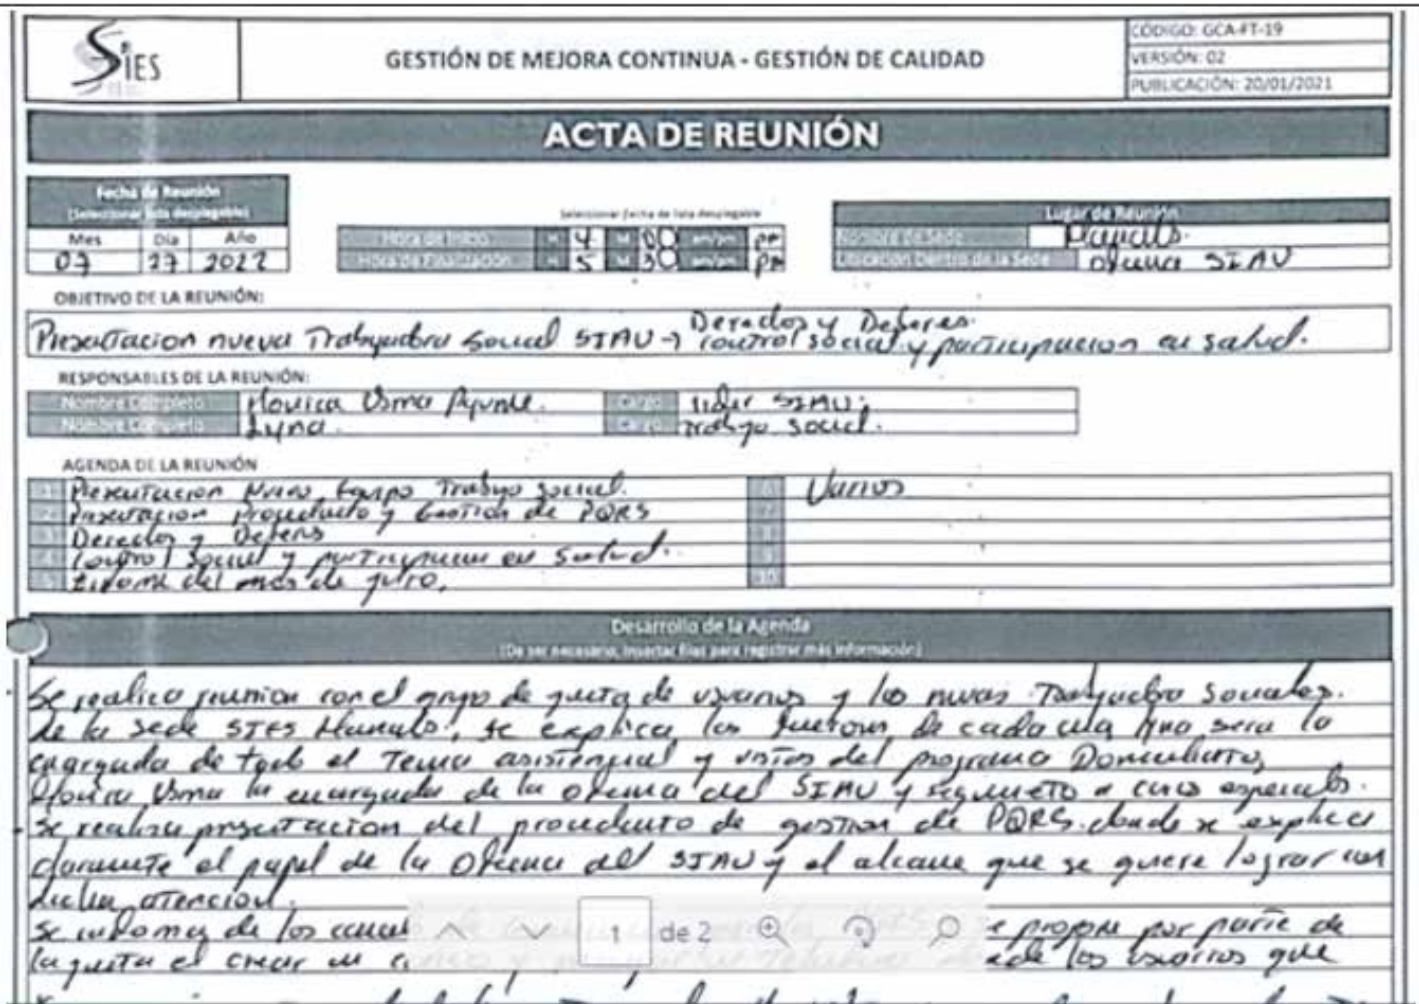 SIES
GESTIÓN DE MEJORA CONTINUA - GESTIÓN DE CALIDAD
CÓDIGO: GCA-FT-19
VERSIÓN: 02
PUBLICACIÓN: 20/01/2021
ACTA DE REUNIÓN
Fecha de Reunión
(Seleccionar lista desplegable)
Mes Día Año
07 27 2022
Seleccionar fecha de lista desplegable
Hora de Inicio H 4 M 00 am/pm pm
Hora de Finalización H 5 M 30 am/pm pm
Lugar de Reunión
Nombre de Sede
Ubicación Dentro de la Sede oficina SIAU
OBJETIVO DE LA REUNIÓN:
Derechos y Deberes
Presentacion nueva Trabajadora Social SIAU → control social y participacion en salud.
RESPONSABLES DE LA REUNIÓN:
Nombre Completo Monica Usma Cargo lider SIAU
Nombre Completo Lyna. Cargo trabajo social.
AGENDA DE LA REUNIÓN
1 Presentacion Nuevo Equipo Trabajo social. 6 Varios
2 Presentacion Procedimiento y Gestion de PQRS 7
3 Derechos y Deberes 8
4 Control Social y participacion en Salud. 9
5 del mes de 10
Desarrollo de la Agenda
(De ser necesario, insertar filas para registrar más información)
Se realica reunion con el grupo de de usuarios y las nuevas Trabajadora Sociales.
de la Sede SIES se explica las de cada una sera la
encargada de todo el Tema asistencial y del programa Domiciliario,
Monica Usma la encargada de la oficina del SIAU y a casos especiales.
se realiza presentacion del procedimiento de gestion de PQRS. donde se explica
claramente el papel de la Oficina del SIAU y el alcance que se quiere lograr con
dicha atencion.
se informa de los se propone por parte de
la el crear un los usuarios que
1 de 2